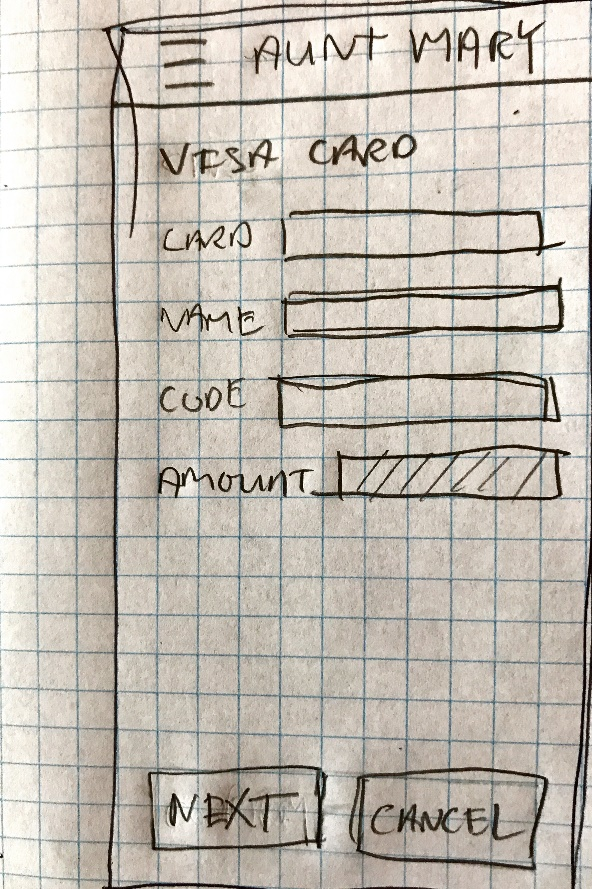 AUNT MARY
VISA CARD
CARD
NAME
CODE
AMOUNT
NEXT CANCEL